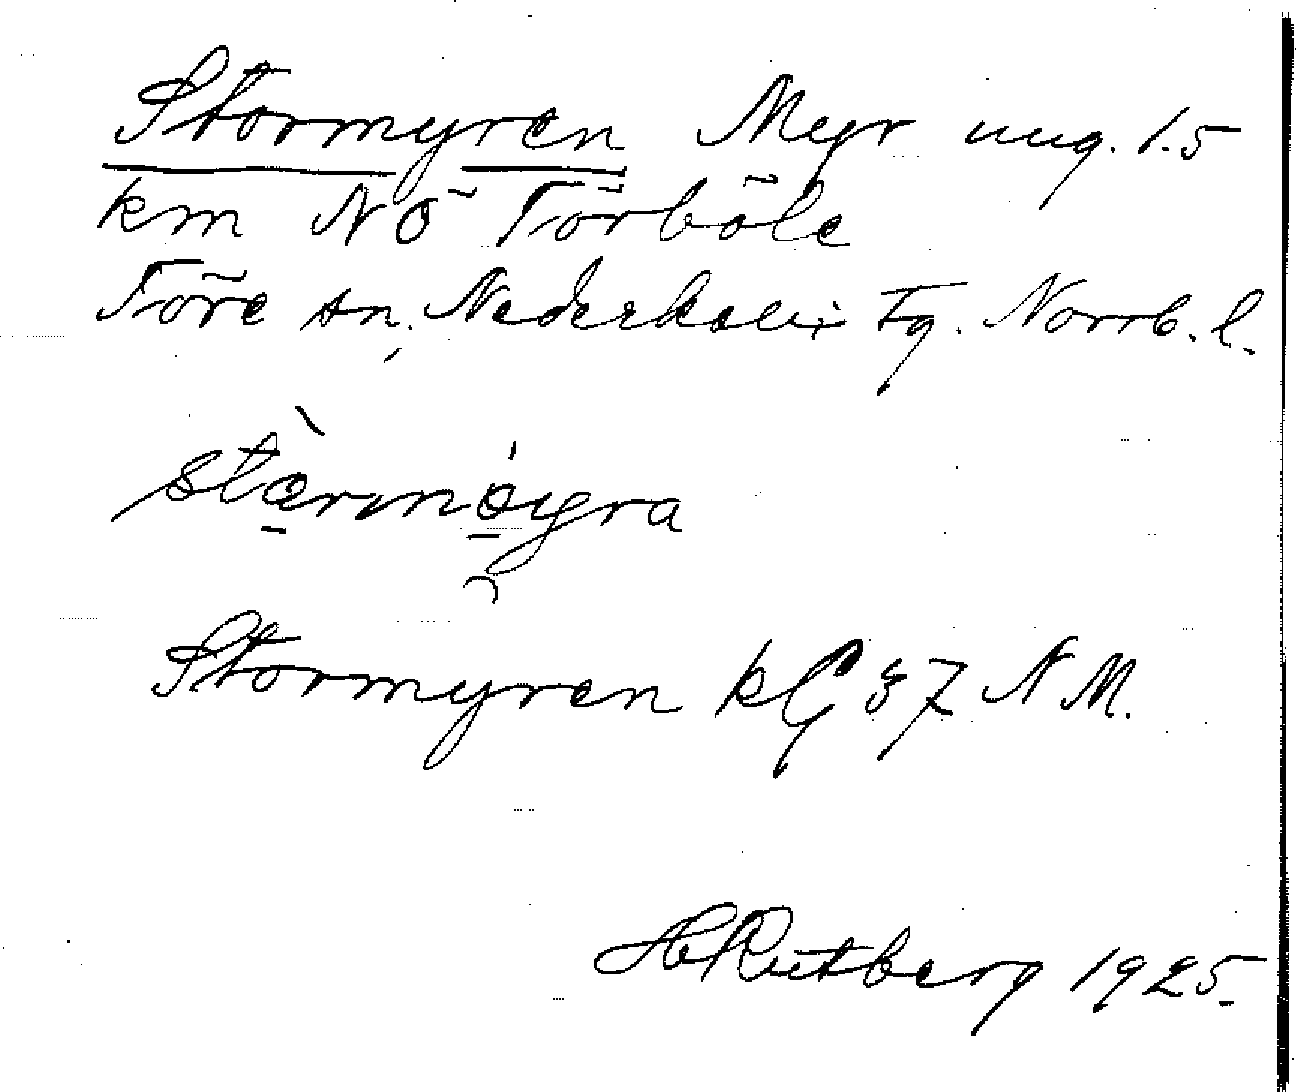 Stormyren Myr ung. 1.5
km NÖ Törböle
Töre sn, Nederkalix tg. Norrb. l.
stòrmöyra
Stormyren kG 37 NM.
H Rutberg 1925.